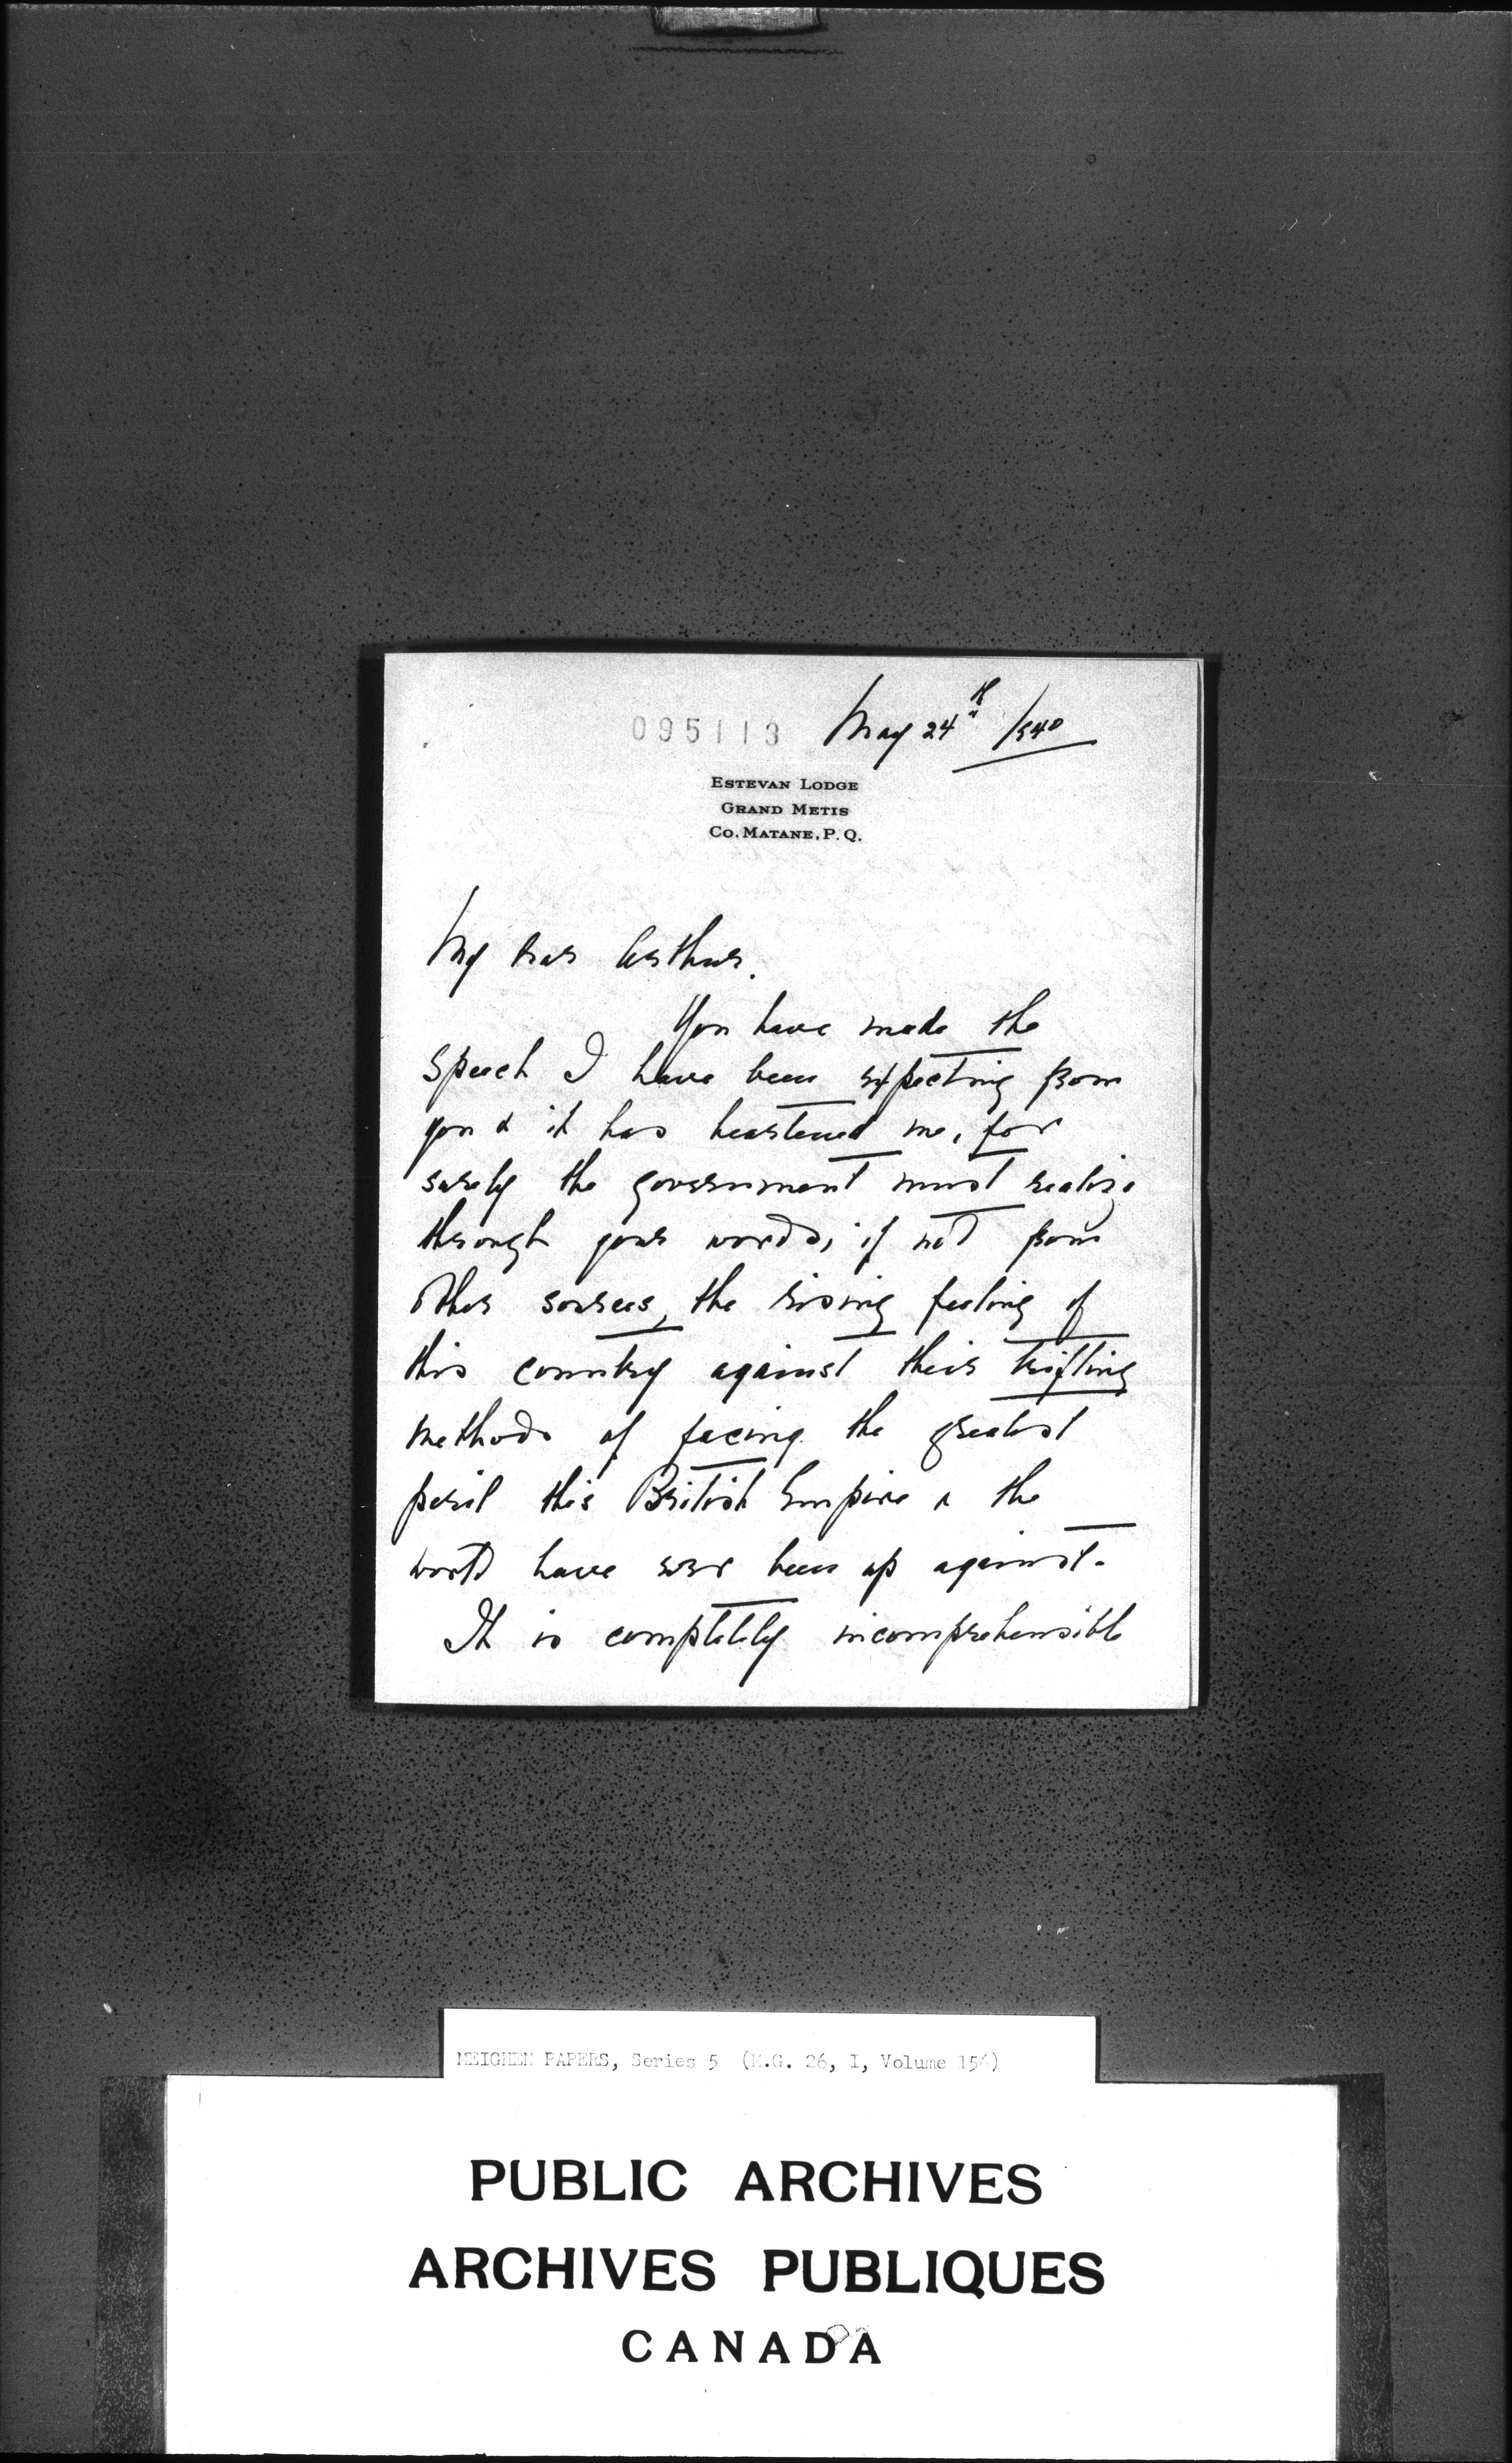 095113 May 24th /1940
ESTEVAN LODGE
GRAND METIS
CO. MATANE, P. Q.
My dear Arthur.
You have made the
speech I have been expecting from
you & it has heartened me, for
surely the government must realize
through your words, if not from
other sources, the rising feeling of
this country against their trifling
methods of facing the greatest
peril this British Empire & the
world have ever been up against.
It is completely incomprehensible
MEIGHEN PAPERS, Series 5 (M.G. 26, I, Volume 154)
PUBLIC ARCHIVES
ARCHIVES PUBLIQUES
CANADA